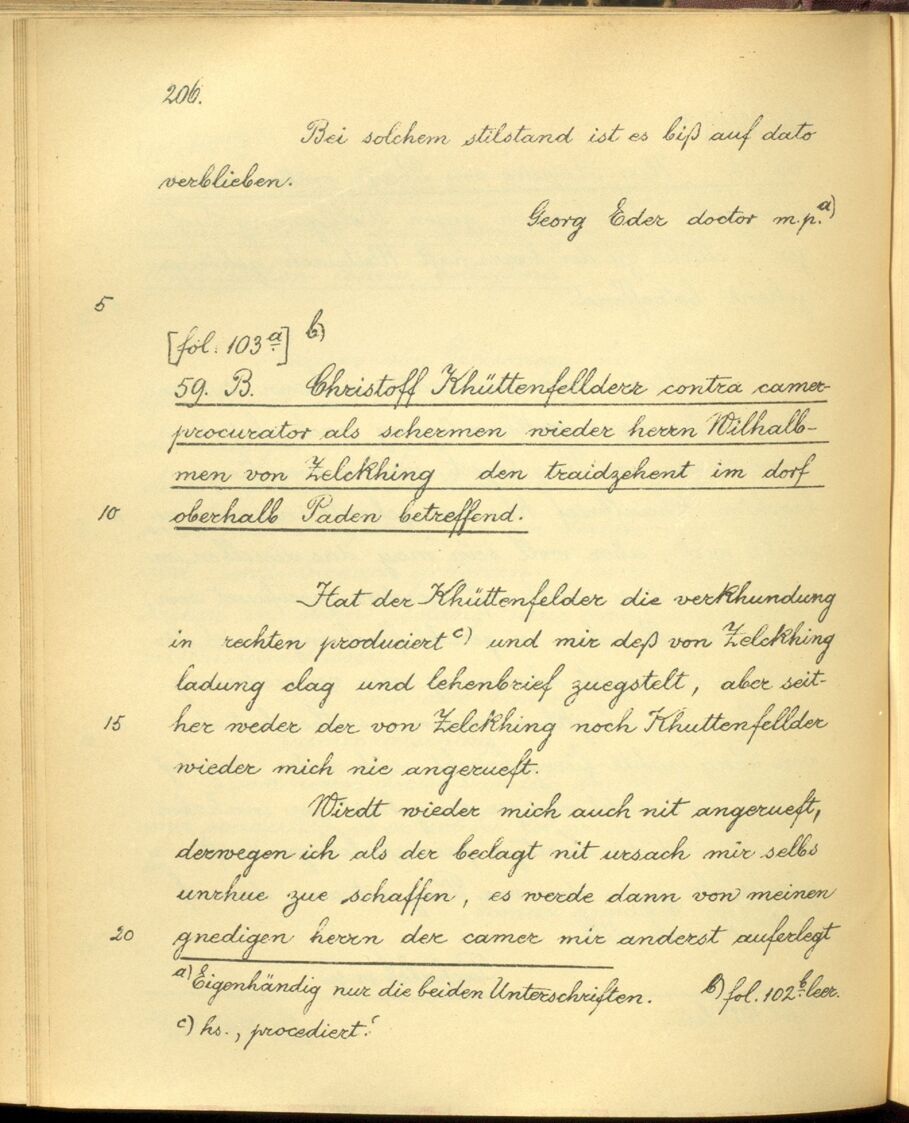 206.
Bei solchem stilstand ist es biß auf dato
verblieben.
Georg Eder doctor m.p.a)
5
[fol. 103a] b)
59. B. Christoff Khüttenfellderr contra camer-
procurator als schermen wieder herrn Wilhalb-
men von Zelckhing den traidzehent im dorf
10 oberhalb Paden betreffend.
Hat der Khüttenfelder die verkhundung
in rechten produciert c) und mir deß von Zelckhing
ladung clag und lehenbrief zuegstelt, aber seit-
15 her weder der von Zelckhing noch Khuttenfellder
wieder mich nie angerueft.
Wirdt wieder mich auch nit angerueft,
derwegen ich als der beclagt nit ursach mir selbs
unrhue zue schaffen, es werde dann von meinen
20 gnedigen herrn der camer mir anderst auferlegt
a) Eigenhändig nur die beiden Unterschriften. b) fol. 102b leer.
c) hs., procediert.'